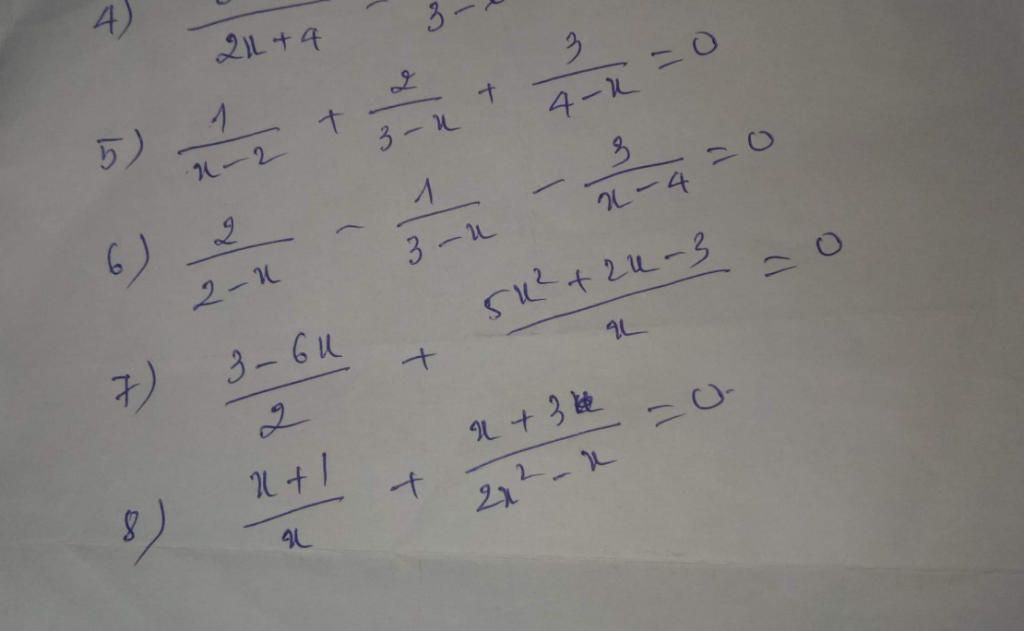 4) /(2x+4) - /(3-
5) 1/(x-2) + 2/(3-x) + 3/(4-x) = 0
6) 2/(2-x) - 1/(3-x) - 3/(x-4) = 0
7) (3-6x)/2 + (5x²+2x-3)/x = 0
8) (x+1)/x + (x+3)/(2x²-x) = 0